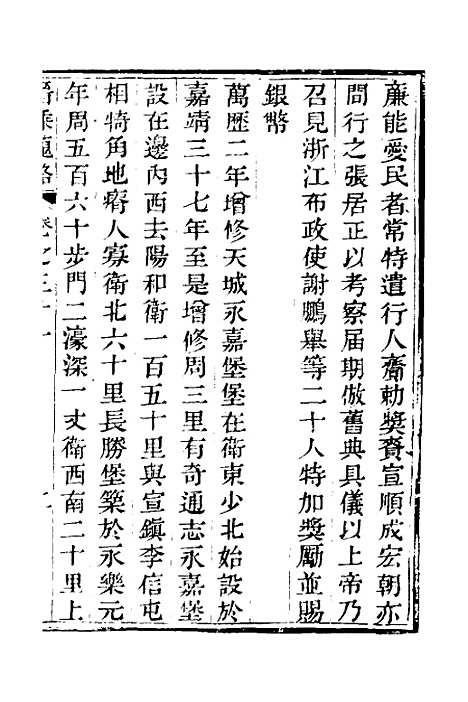 廉能愛民者常特遣行人齎勅獎賚宣順成宏朝亦
間行之張居正以考察届期倣舊典具儀以上帝乃
召見浙江布政使謝鵬舉等二十人特加獎勵並賜
銀幣
萬歷二年增修天城永嘉堡堡在衛東少北始設於
嘉靖三十七年至是增修周三里有奇通志永嘉堡
設在邊內西去陽和衛一百五十里與宣鎮李信屯
相犄角地瘠人寡衛北六十里長勝堡築於永樂元
年周五百六十步門二濠深一丈衛西南二十里上
晉乘蒐略 卷之三十一